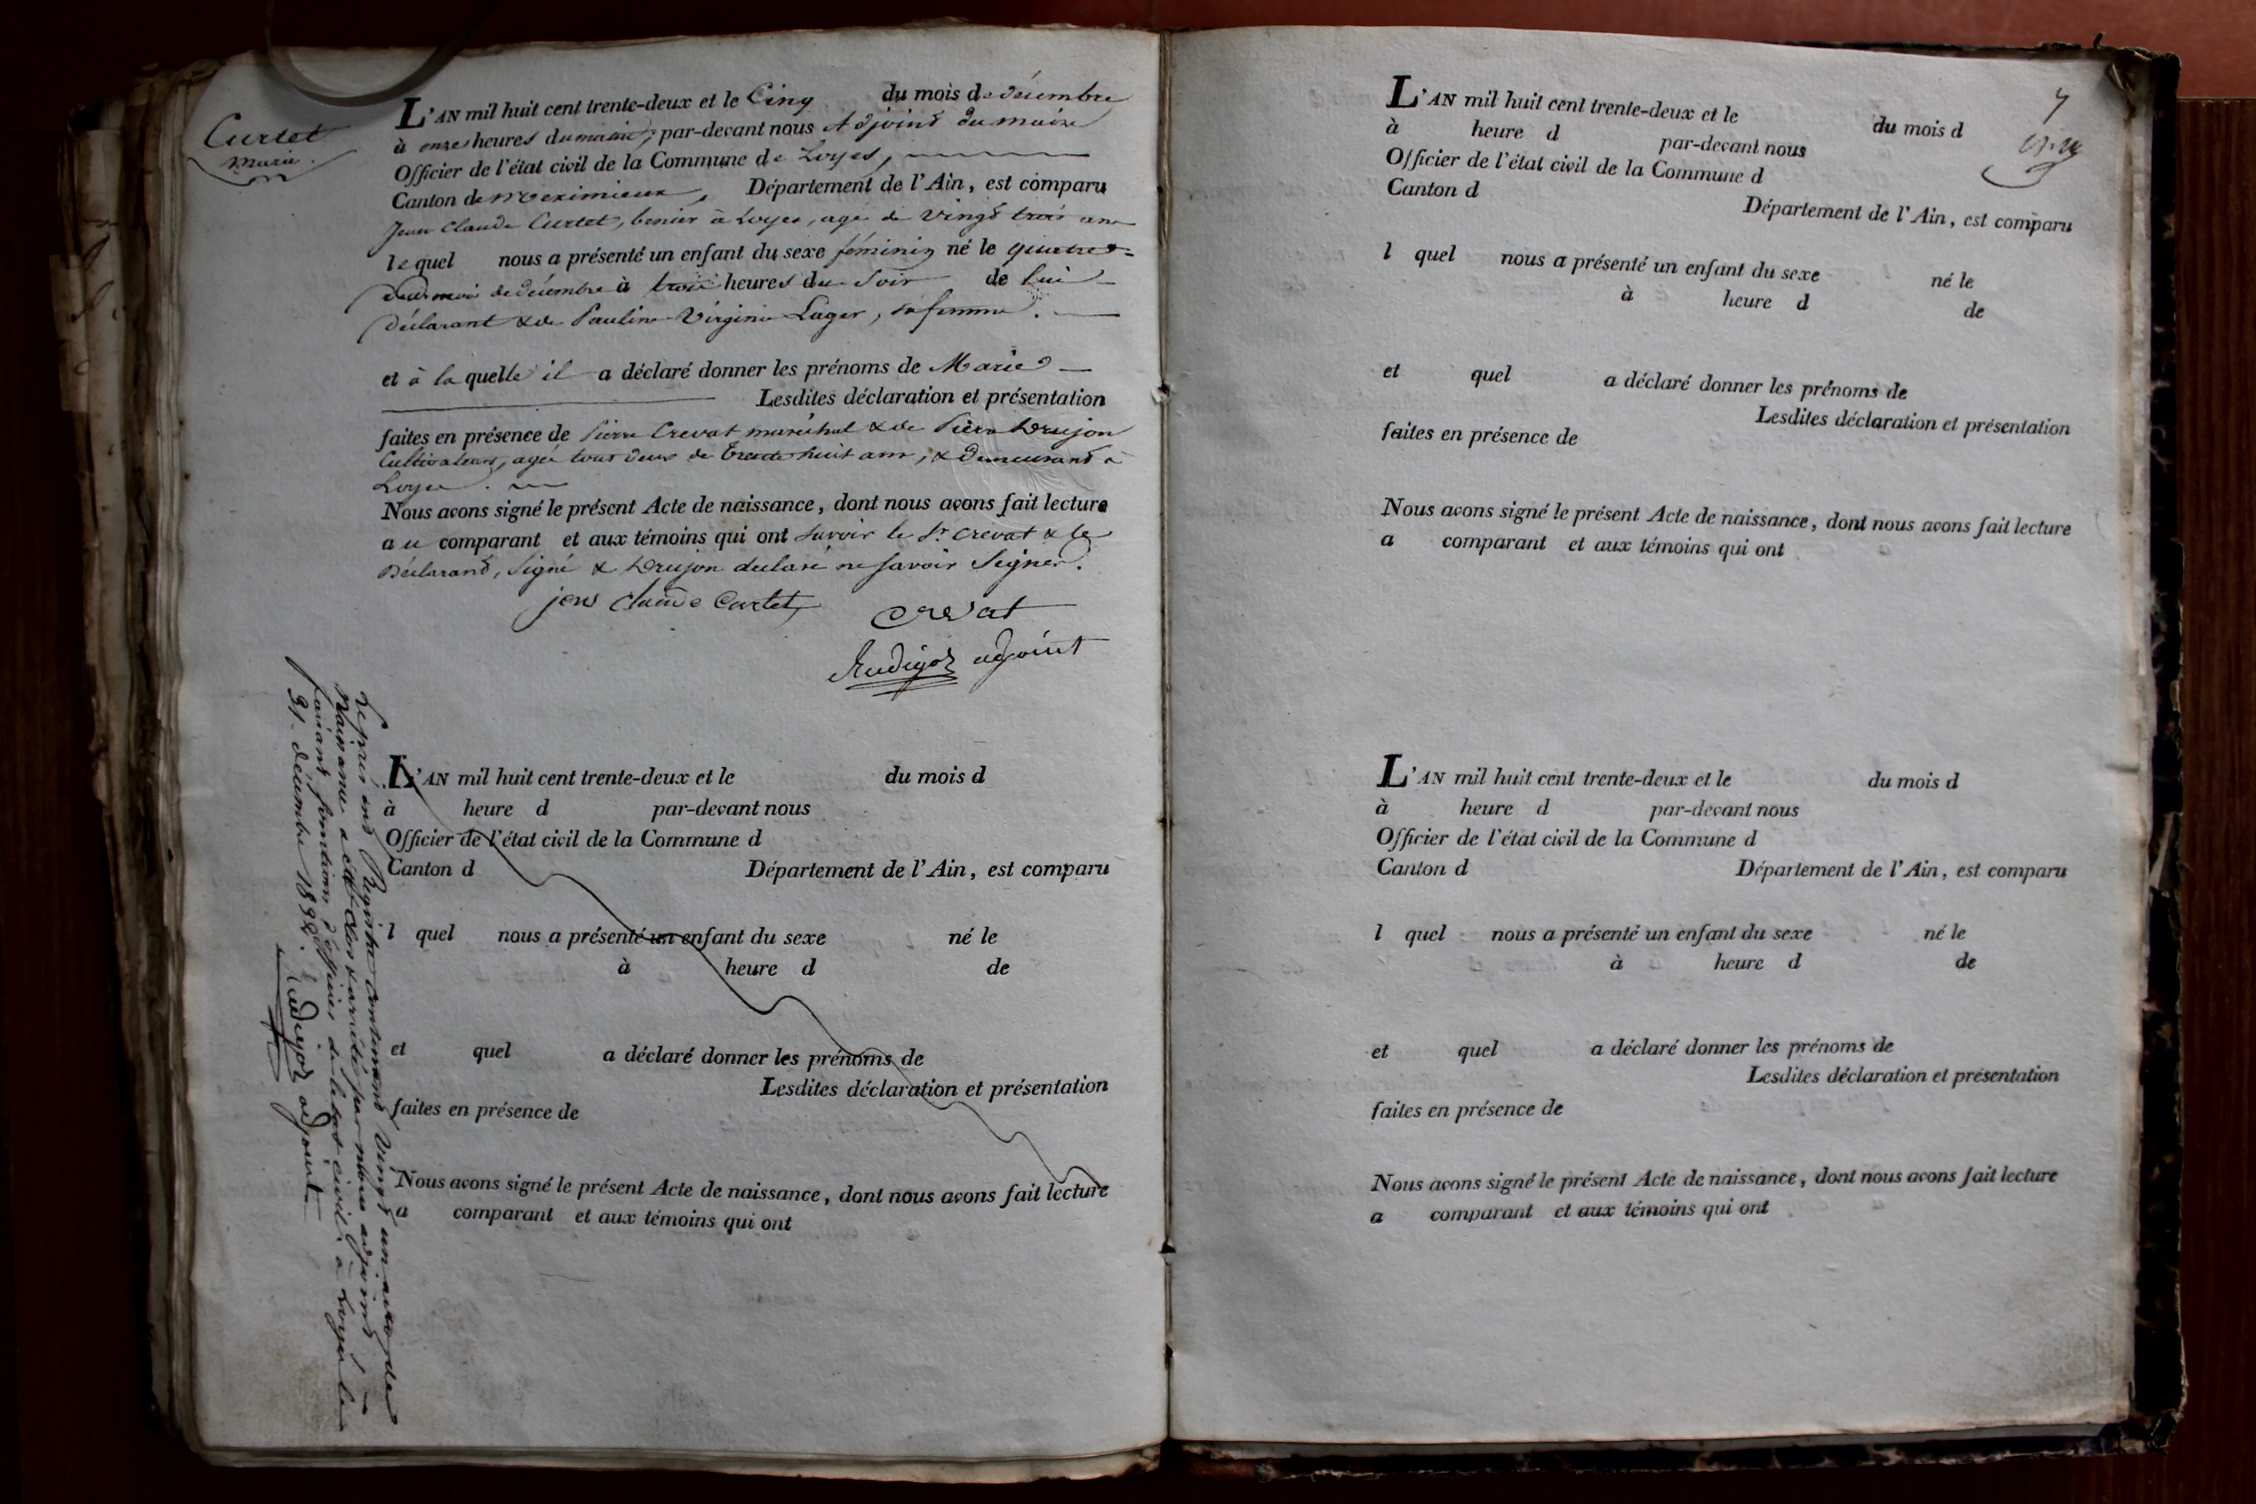 Curtet
Marie.
L'AN mil huit cent trente-deux et le Cinq du mois de décembre
à onze heures du matin, par-devant nous Adjoint du maire
Officier de l'état civil de la Commune de Loyes,
Canton de Meximieux, Département de l'Ain, est comparu
Jean Claude Curtet, benier à Loyes, agé de vingt trois ans
lequel nous a présenté un enfant du sexe féminin né le quatre
du mois de décembre à trois heures du soir de lui
déclarant & de Pauline Virginie Lager, sa femme.
et à laquelle il a déclaré donner les prénoms de Marie
Lesdites déclaration et présentation
faites en présence de Pierre Crevat maréchal & de Pierre Drujon
Cultivateurs, agés tous deux de trente huit ans, & demeurant à
Loyes.
Nous avons signé le présent Acte de naissance, dont nous avons fait lecture
au comparant et aux témoins qui ont savoir le Sr. Crevat & le
Déclarant, signé & Drujon déclaré ne savoir signer.
jean Claude Curtet
Crevat
Rudigoz adjoint
L'AN mil huit cent trente-deux et le du mois d
à heure d par-devant nous
Officier de l'état civil de la Commune d
Canton d Département de l'Ain, est comparu
l quel nous a présenté un enfant du sexe né le
à heure d de
et quel a déclaré donner les prénoms de
Lesdites déclaration et présentation
faites en présence de
Nous avons signé le présent Acte de naissance, dont nous avons fait lecture
a comparant et aux témoins qui ont
Le présent Registre contenant vingt un actes de
Naissance a été clos & arrêté par nous adjoint
faisant fonctions d'officier de l'état civil, à Loyes le
31 décembre 1832.
Rudigoz adjoint
7
L'AN mil huit cent trente-deux et le du mois d
à heure d par-devant nous
Officier de l'état civil de la Commune d
Canton d Département de l'Ain, est comparu
l quel nous a présenté un enfant du sexe né le
à heure d de
et quel a déclaré donner les prénoms de
Lesdites déclaration et présentation
faites en présence de
Nous avons signé le présent Acte de naissance, dont nous avons fait lecture
a comparant et aux témoins qui ont
L'AN mil huit cent trente-deux et le du mois d
à heure d par-devant nous
Officier de l'état civil de la Commune d
Canton d Département de l'Ain, est comparu
l quel nous a présenté un enfant du sexe né le
à heure d de
et quel a déclaré donner les prénoms de
Lesdites déclaration et présentation
faites en présence de
Nous avons signé le présent Acte de naissance, dont nous avons fait lecture
a comparant et aux témoins qui ont